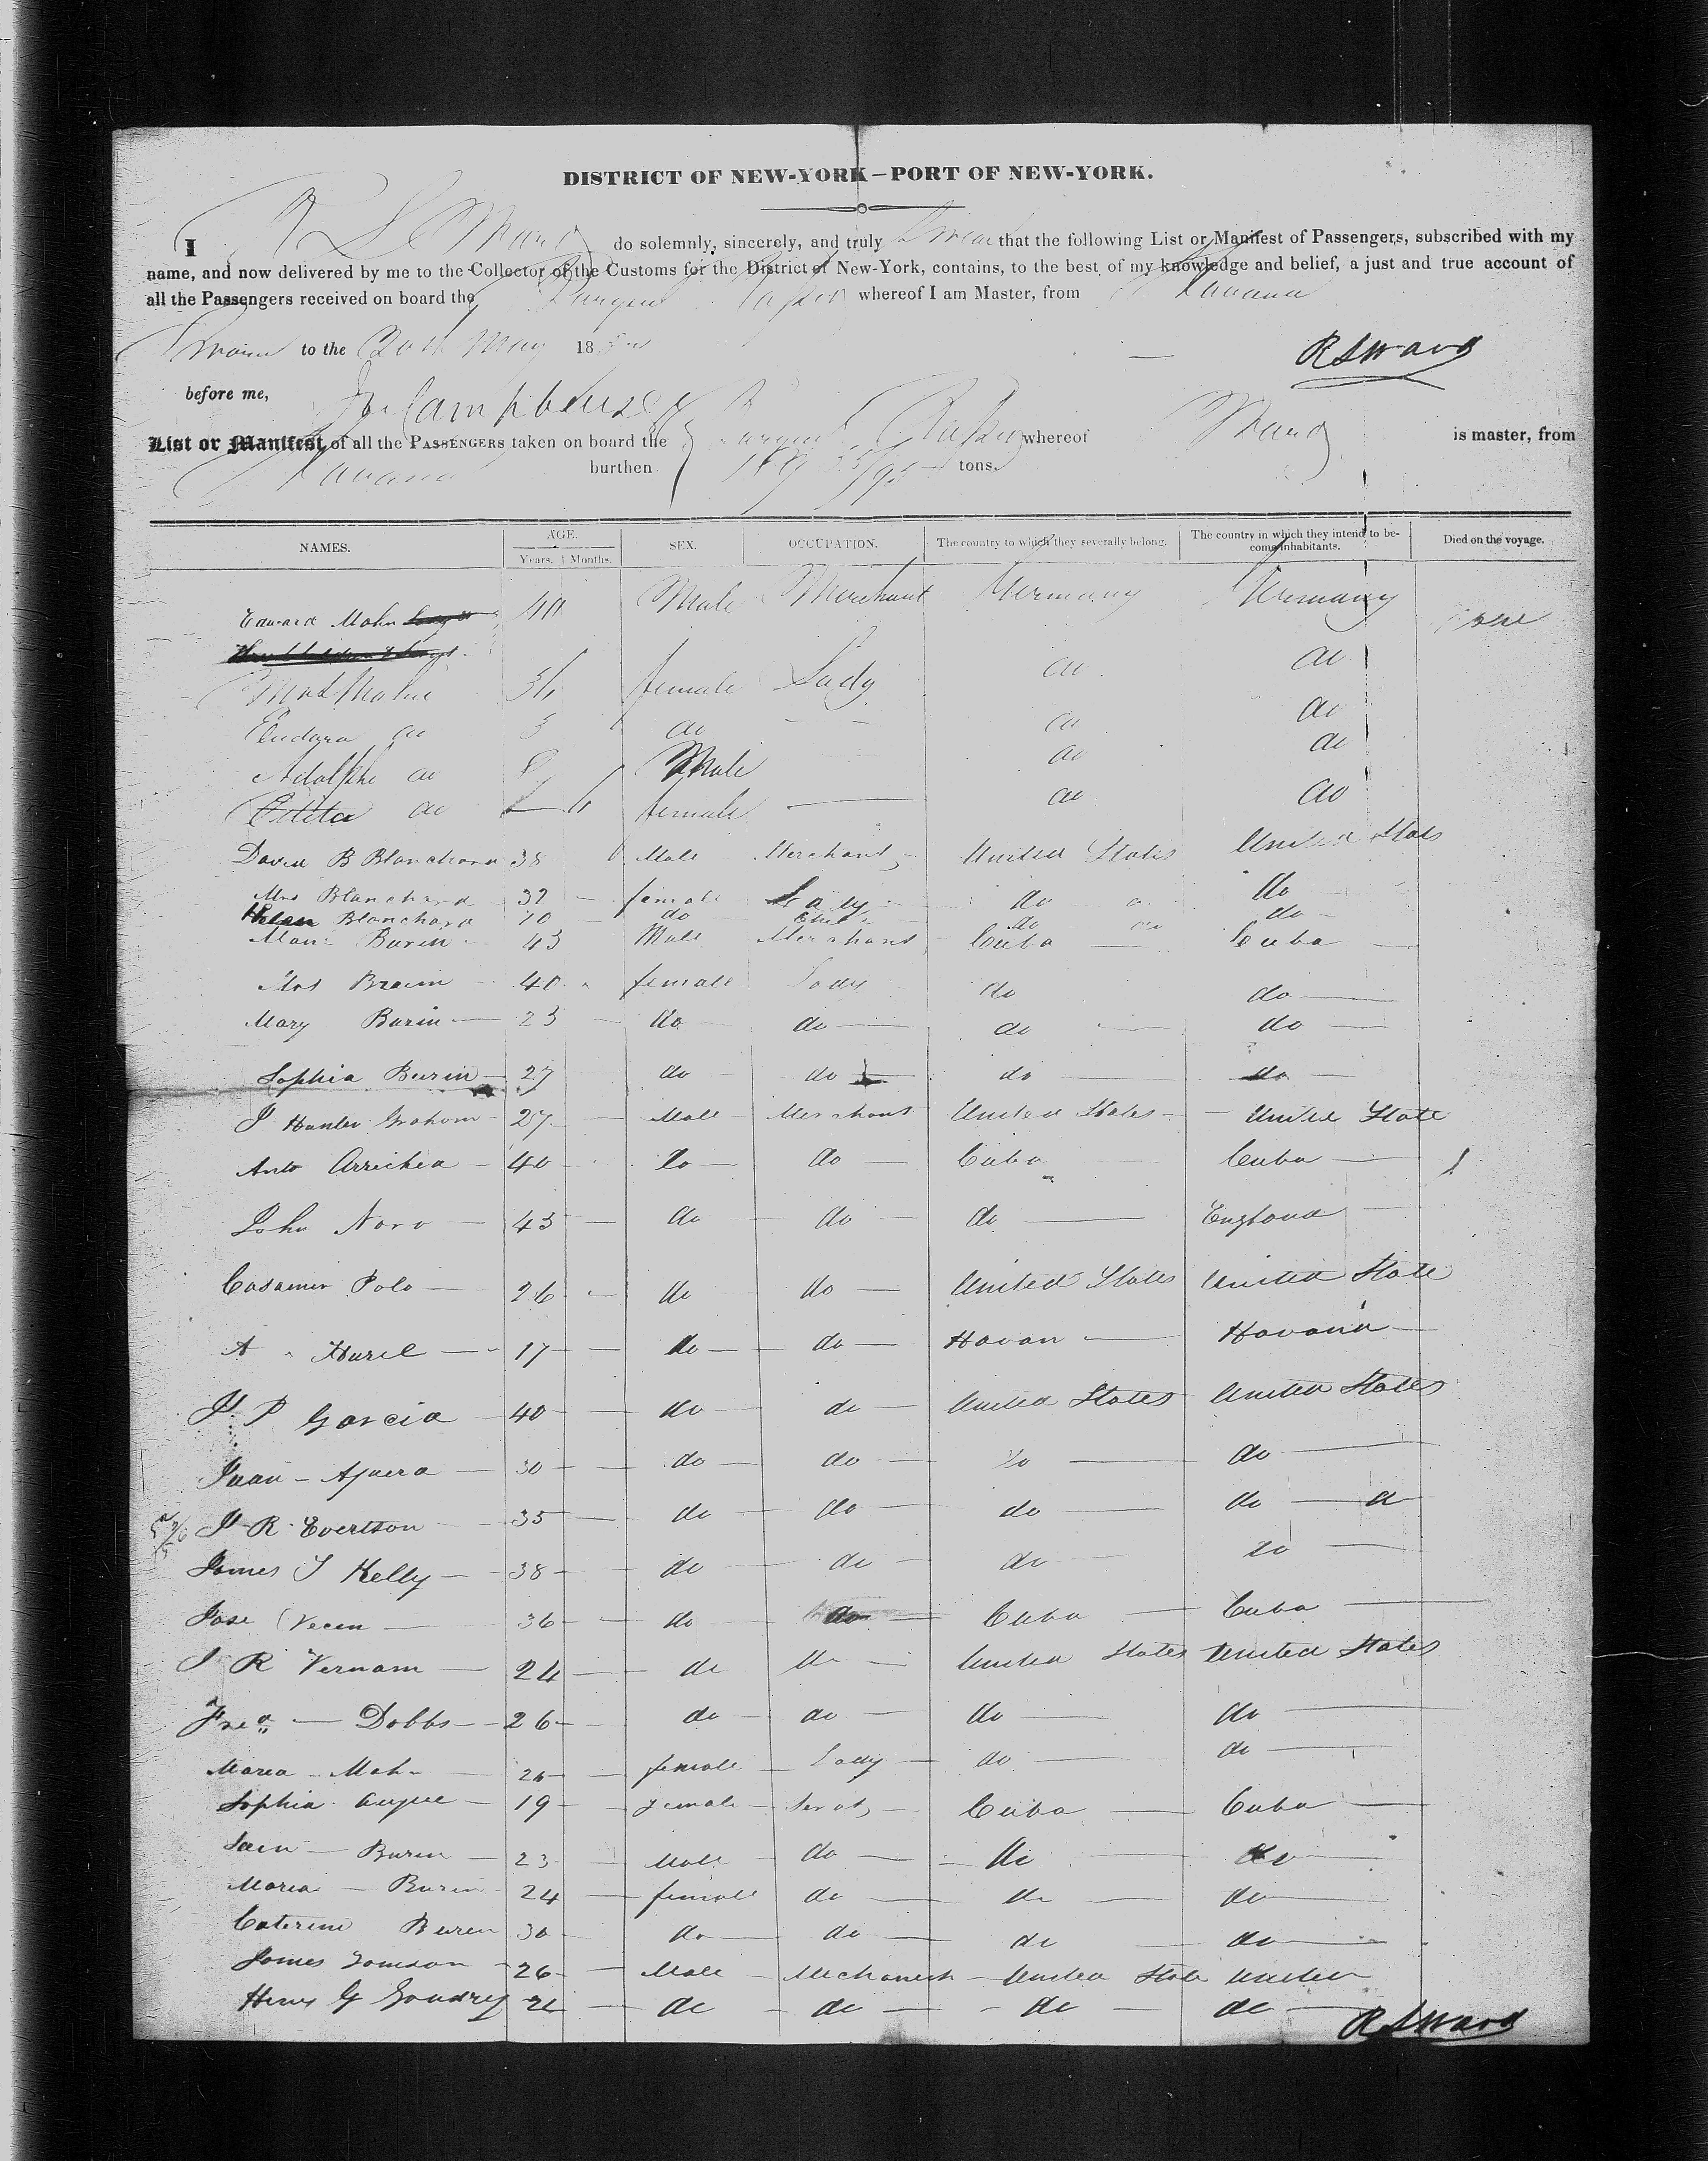 DISTRICT OF NEW-YORK—PORT OF NEW-YORK.
I R S Ward do solemnly, sincerely, and truly swear that the following List or Manifest of Passengers, subscribed with my
name, and now delivered by me to the Collector of the Customs for the District of New-York, contains, to the best of my knowledge and belief, a just and true account of
all the Passengers received on board the Barque Rapid whereof I am Master, from Havana
Sworn to the 20th May 18
R S Ward
before me,
List or Manifest of all the PASSENGERS taken on board the Barque Rapid whereof Ward is master, from
Havana burthen tons.
NAMES. AGE. SEX. OCCUPATION. The country to which they severally belong. The country in which they intend to be- Died on the voyage.
Years. Months. come inhabitants.
Edward Mahn 40 Male Merchant Germany Germany None
Mrs Mahn 36 female Lady do do
Eudora do 5 do — — do do
Adolphe do 8 Male do do
do 6 female — do do
David B Blanchard 38 Male Merchant United States United States
Mrs Blanchard 32 female Lady do do
Helen Blanchard 10 do Child do do
Man Burin 45 Male Merchant Cuba Cuba
Mrs Burin 40 female Lady do do
Mary Burin — 23 do do do do
Sophia Burin — 27 do do do do
J Hunter Graham 27 Male Merchant United States United State
Anto Arrichea 40 do do Cuba Cuba
John Noro 43 do do do England
Casamer Polo 26 do do United States United State
A Hurel 17 do do Havan Havana
J P Garcia 40 do do United States United States
Juan — Ajuera 30 do do do do
J R Evertson 35 do do do do
James J Kelly 38 do do do do
Jose Vecen 36 do do Cuba Cuba
J R Vernam 24 do do United States United States
Fred — Dobbs 26 do do do do
Maria Mah 26 female Lady do do
Sophia Augue 19 Female Servt Cuba Cuba
Buren 23 Male do do do
Maria — Buren 24 female do do do
Caterine Buren 30 do do do do
James Tomson 26 Male Mechanick United State United
Henry G 22 do do do do
R S Ward